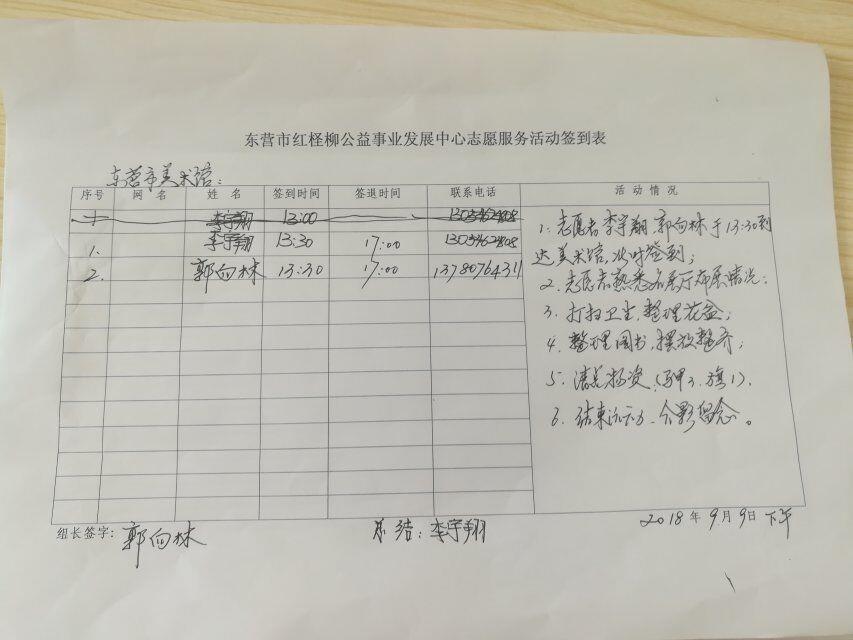 东营市红柽柳公益事业发展中心志愿服务活动签到表
东营市美术馆：
序号 网 名 姓 名 签到时间 签退时间 联系电话 活 动 情 况
1 李宇翔 13:00
1. 李宇翔 13:30 17:00
2. 郭向林 13:30 17:00 1378076431
1. 志愿者李宇翔、郭向林于13:30到
达美术馆，准时签到；
2. 志愿者熟悉各展厅布展情况；
3. 打扫卫生，整理花盆；
4. 整理图书，摆放整齐；
5. 清点物资（马甲3、旗1）．
6. 结束活动、合影留念。
组长签字：郭向林 总结：李宇翔 2018年9月9日下午